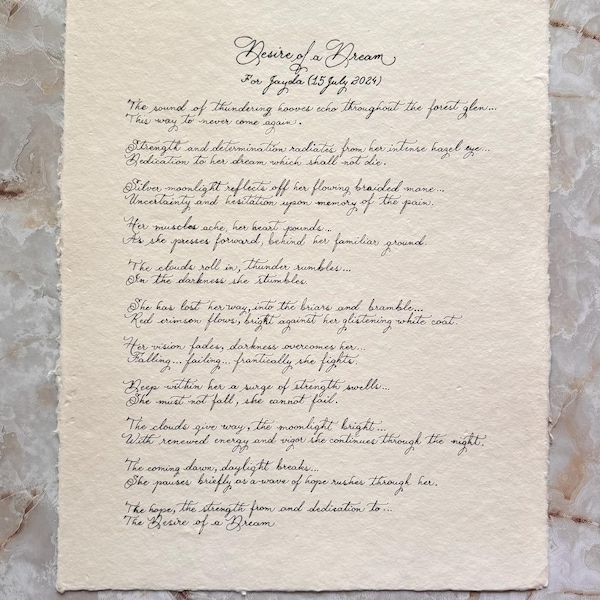 Desire of a Dream
For Jayda (15 July 2024)
The sound of thundering hooves echo throughout the forest glen...
This way to never come again.
Strength and determination radiates from her intense hazel eye...
Dedication to her dream which shall not die.
Silver moonlight reflects off her flowing braided mane...
Uncertainty and hesitation upon memory of the pain.
Her muscles ache, her heart pounds...
As she presses forward, behind her familiar ground.
The clouds roll in, thunder rumbles...
In the darkness she stumbles.
She has lost her way, into the briars and bramble...
Red crimson flows, bright against her glistening white coat.
Her vision fades, darkness overcomes her...
Falling... failing... frantically she fights.
Deep within her a surge of strength swells...
She must not fall, she cannot fail.
The clouds give way, the moonlight bright...
With renewed energy and vigor she continues through the night.
The coming dawn, daylight breaks...
She pauses briefly as a wave of hope rushes through her.
The hope, the strength from and dedication to...
The Desire of a Dream